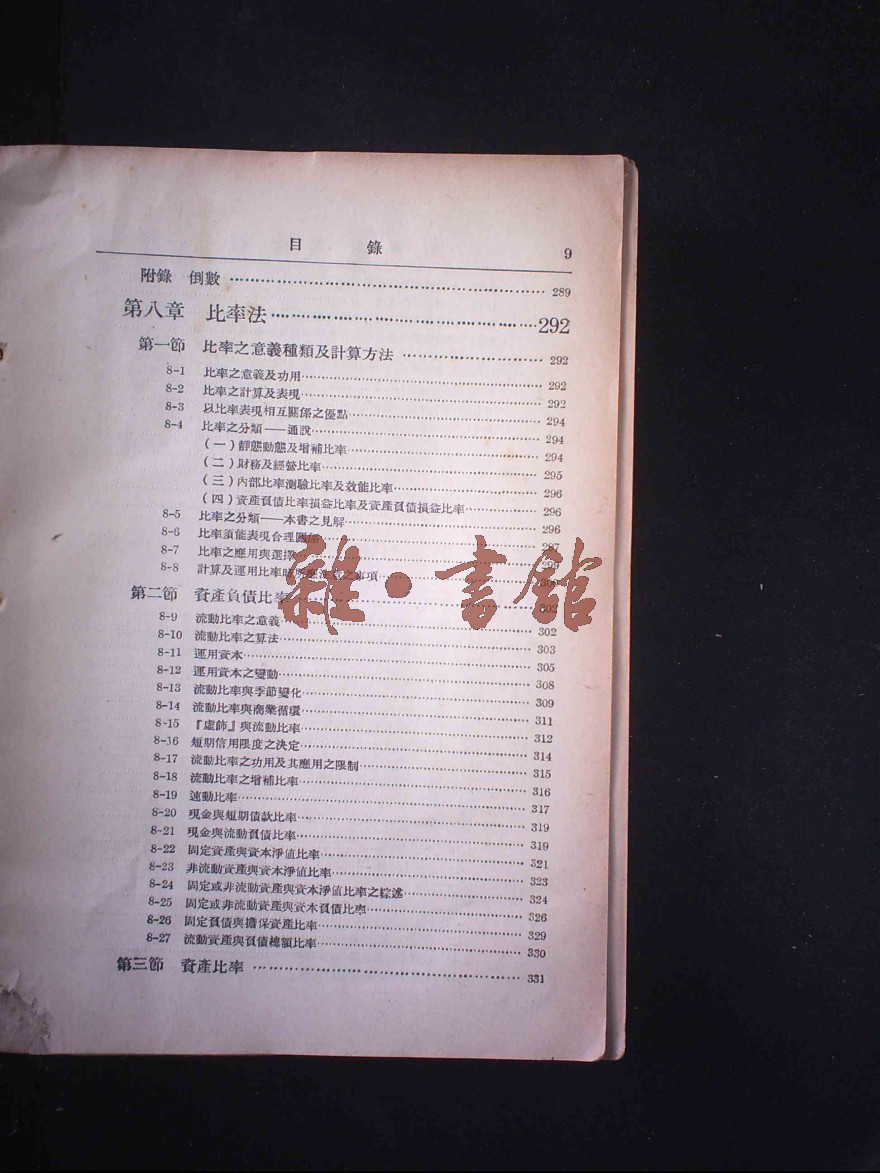 目 錄 9
附錄 倒數 289
第八章 比率法 292
第一節 比率之意義種類及計算方法 292
8-1 比率之意義及功用 292
8-2 比率之計算及表現 293
8-3 以比率表現相互關係之優點 294
8-4 比率之分類——通說 294
(一)靜態動態及增補比率 294
(二)財務及經營比率 295
(三)內部比率測驗比率及效能比率 296
(四)資產負債比率損益比率及資產負債損益比率 296
8-5 比率之分類——本書之見解 296
8-6 比率須能表現合理關係 297
8-7 比率之應用與選擇
8-8 計算及運用比率時所應注意之事項 300
第二節 資產負債比率 302
8-9 流動比率之意義 302
8-10 流動比率之算法 303
8-11 運用資本 305
8-12 運用資本之變動 308
8-13 流動比率與季節變化 309
8-14 流動比率與商業循環 311
8-15 『虛飾』與流動比率 312
8-16 短期信用限度之決定 314
8-17 流動比率之功用及其應用之限制 315
8-18 流動比率之增補比率 316
8-19 速動比率 317
8-20 現金與短期債款比率 319
8-21 現金與流動負債比率 319
8-22 固定資產與資本淨值比率 321
8-23 非流動資產與資本淨值比率 323
8-24 固定或非流動資產與資本淨值比率之綜述 324
8-25 固定或非流動資產與資本負債比率 326
8-26 固定負債與擔保資產比率 329
8-27 流動資產與負債總額比率 330
第三節 資產比率 331
雜·書館